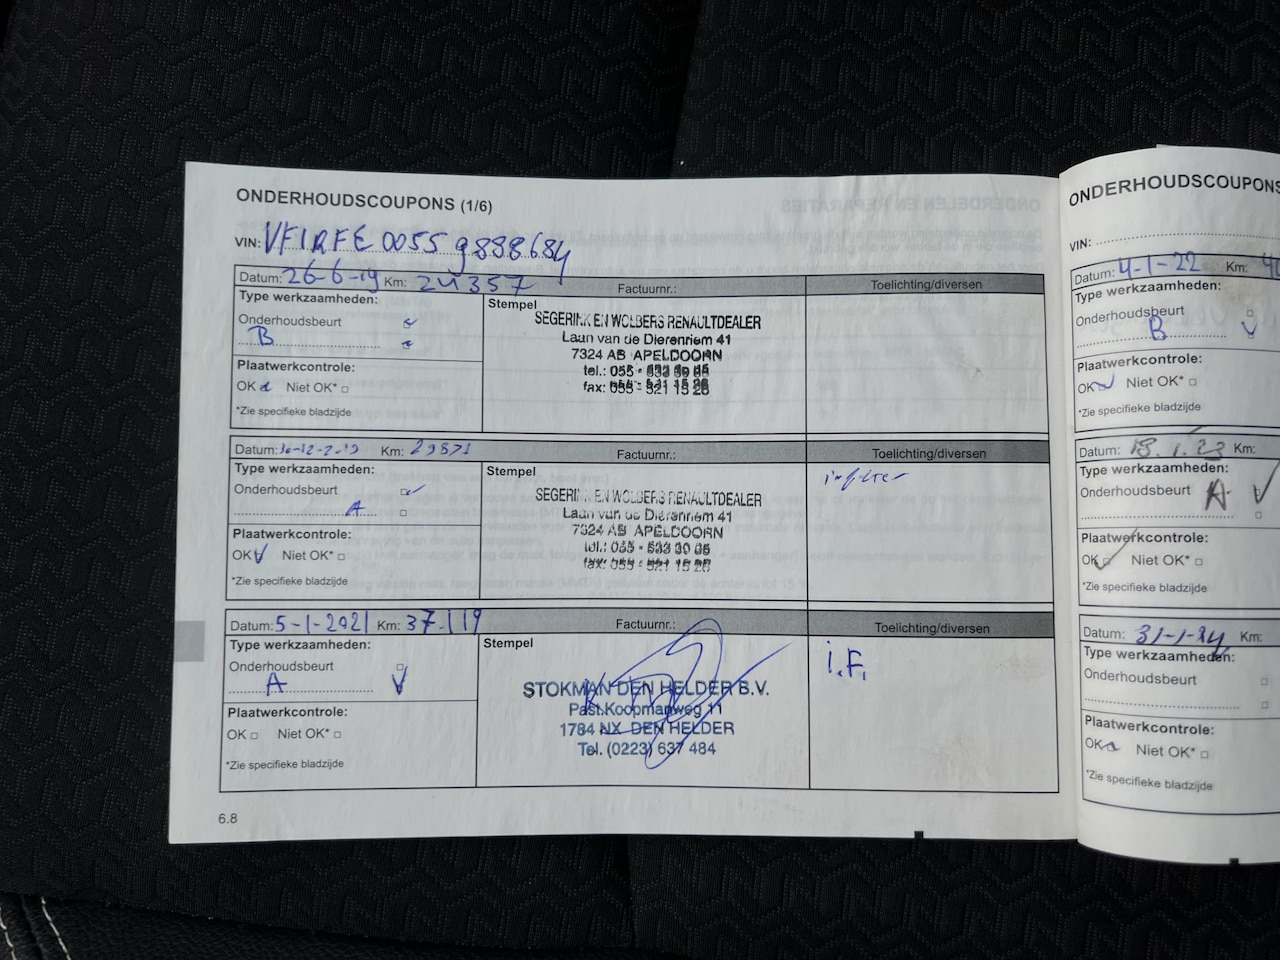 ONDERHOUDSCOUPONS (1/6)
VIN: VF1RFE00559888684
Datum: 26-6-19 Km: 24357 Factuurnr.: Toelichting/diversen
Type werkzaamheden:
Onderhoudsbeurt
B
Plaatwerkcontrole:
OK Niet OK*
*Zie specifieke bladzijde
Stempel
SEGERINK EN WOLBERS RENAULTDEALER
Laan van de Dierenriem 41
7324 AB APELDOORN
tel.: 055 - 533 30 05
fax: 055 - 521 15 26
Datum: Km: 29871 Factuurnr.: Toelichting/diversen
Type werkzaamheden:
Onderhoudsbeurt
A
Plaatwerkcontrole:
OK Niet OK*
*Zie specifieke bladzijde
Stempel
SEGERINK EN WOLBERS RENAULTDEALER
Laan van de Dierenriem 41
7324 AB APELDOORN
tel.: 055 - 533 30 05
fax: 055 - 521 15 26
Datum: 5-1-2021 Km: 37.119 Factuurnr.: Toelichting/diversen
Type werkzaamheden:
Onderhoudsbeurt
A
Plaatwerkcontrole:
OK Niet OK*
*Zie specifieke bladzijde
Stempel
STOKMAN DEN HELDER B.V.
Past.Koopmanweg 11
1784 NX DEN HELDER
Tel. (0223) 637 484
i.F.
6.8
ONDERHOUDSCOUPONS
VIN:
Datum: 4-1-22 Km:
Type werkzaamheden:
Onderhoudsbeurt
B
Plaatwerkcontrole:
OK Niet OK*
*Zie specifieke bladzijde
Datum: 18.1.23 Km:
Type werkzaamheden:
Onderhoudsbeurt A
Plaatwerkcontrole:
OK Niet OK*
*Zie specifieke bladzijde
Datum: 31-1-24 Km:
Type werkzaamheden:
Onderhoudsbeurt
Plaatwerkcontrole:
OK Niet OK*
*Zie specifieke bladzijde